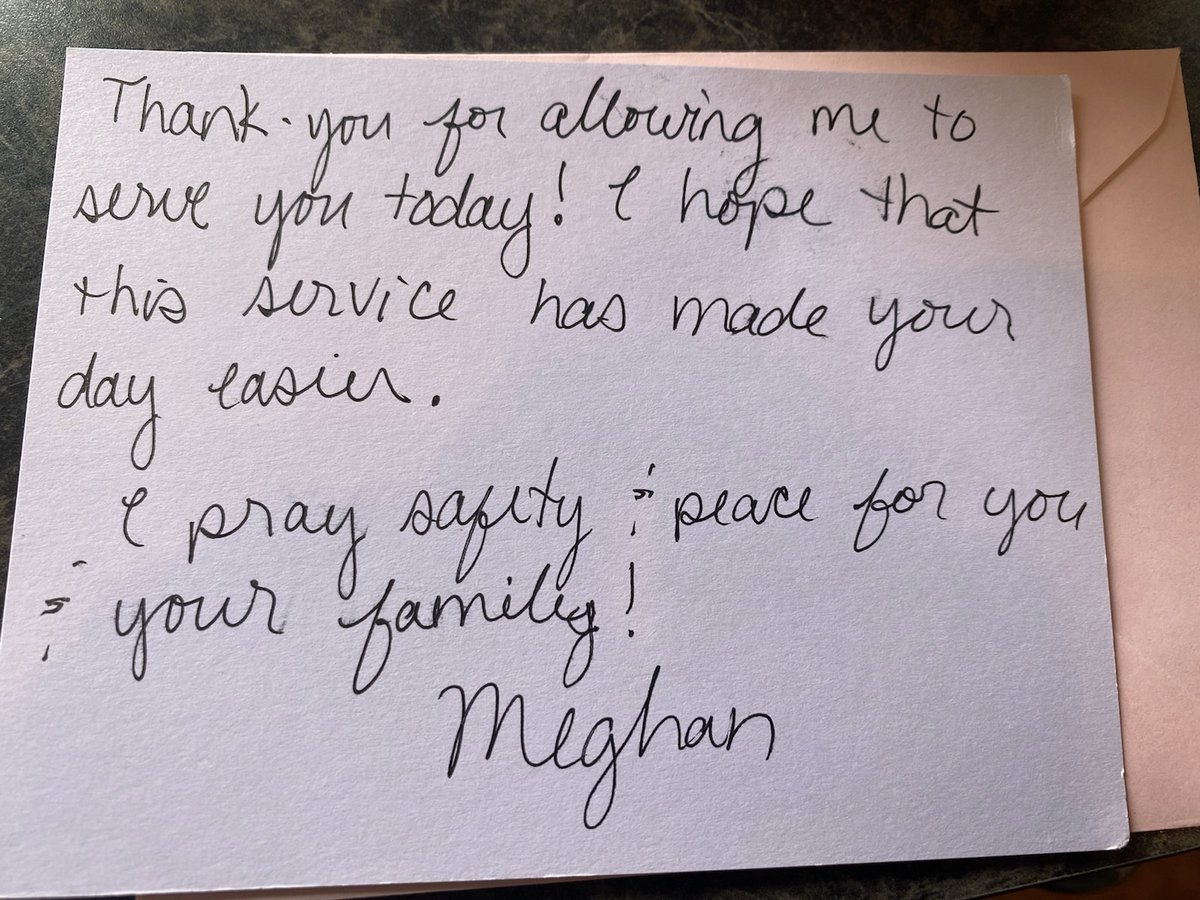 Thank-you for allowing me to
serve you today! I hope that
this service has made your
day easier.
I pray safety & peace for you
& your family!
Meghan